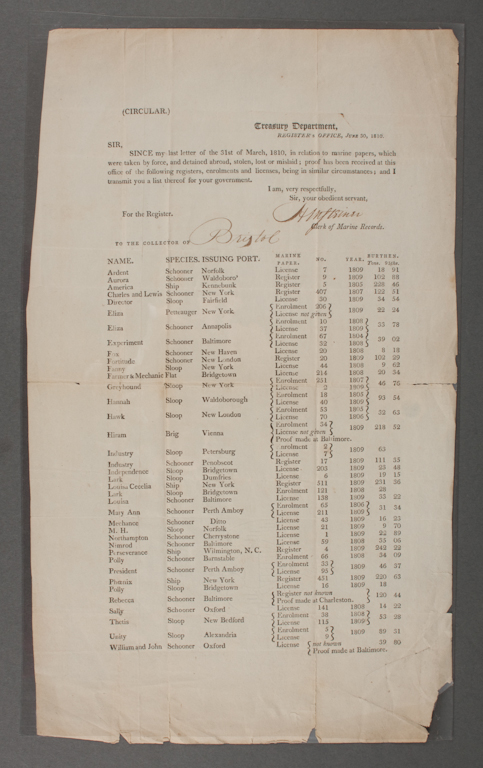 (CIRCULAR.)
Treasury Department,
REGISTER's OFFICE, June 30, 1810.
SIR,
SINCE my last letter of the 31st of March, 1810, in relation to marine papers, which
were taken by force, and detained abroad, stolen, lost or mislaid; proof has been received at this
office of the following registers, enrolments and licenses, being in similar circumstances; and I
transmit you a list thereof for your government.
I am, very respectfully,
Sir, your obedient servant,
For the Register.
Clerk of Marine Records.
TO THE COLLECTOR OF Bristol
NAME. SPECIES. ISSUING PORT. MARINE PAPER. NO. YEAR. BURTHEN. Tons. 95ths.
Ardent Schooner Norfolk License 7 1809 18 91
Aurora Schooner Waldoboro' Register 9 1809 102 88
America Ship Kennebunk Register 5 1805 238 46
Charles and Lewis Schooner New York Register 407 1807 122 51
Director Sloop Fairfield License 30 1809 54 54
Eliza Pettiauger New York { Enrolment 206 } 1809 22 24
{ License not given }
Eliza Schooner Annapolis { Enrolment 10 1808 } 35 78
{ License 37 1809 }
Experiment Schooner Baltimore { Enrolment 67 1804 } 39 02
{ License 52 1808 }
Fox Schooner New Haven License 20 1808 8 18
Fortitude Schooner New London Register 20 1809 102 29
Fanny Sloop New York License 44 1808 9 62
Farmer & Mechanic Flat Bridgetown License 214 1808 20 54
Greyhound Sloop New York { Enrolment 251 1807 } 46 76
{ License 2 1809 }
Hannah Sloop Waldoborough { Enrolment 18 1805 } 93 54
{ License 40 1809 }
Hawk Sloop New London { Enrolment 53 1805 } 32 63
{ License 70 1806 }
Hiram Brig Vienna { Enrolment 34 } 1809 218 52
{ License not given }
{ Proof made at Baltimore.
Industry Sloop Petersburg { Enrolment 2 } 1809 63
{ License 7 }
Industry Schooner Penobscot Register 17 1809 111 55
Independence Sloop Bridgetown License 203 1809 23 48
Lark Sloop Dumfries License 6 1809 19 15
Louisa Cecelia Ship New York Register 311 1809 231 36
Lark Sloop Bridgetown Enrolment 121 1808 28
Louisa Schooner Baltimore License 138 1809 53 22
Mary Ann Schooner Perth Amboy { Enrolment 65 1806 } 31 34
{ License 211 1809 }
Mechance Schooner Ditto License 43 1809 16 23
M. H. Sloop Norfolk License 21 1809 9 70
Northampton Schooner Cherrystone License 1 1809 22 89
Nimrod Schooner Baltimore License 59 1808 35 06
Perseverance Ship Wilmington, N. C. Register 4 1808 342 22
Polly Schooner Barnstable Enrolment 66 1808 34 09
President Schooner Perth Amboy { Enrolment 33 } 1809 46 37
{ License 95 }
Phœnix Ship New York Register 451 1809 220 63
Polly Sloop Bridgetown License 16 1809 18
Rebecca Schooner Baltimore { Register not known } 120 44
{ Proof made at Charleston.
Sally Schooner Oxford License 141 1808 14 22
Thetis Sloop New Bedford { Enrolment 38 1808 } 53 28
{ License 113 1809 }
Unity Sloop Alexandria { Enrolment 3 } 1809 39 31
{ License 9 }
William and John Schooner Oxford License { not known 39 80
{ Proof made at Baltimore.